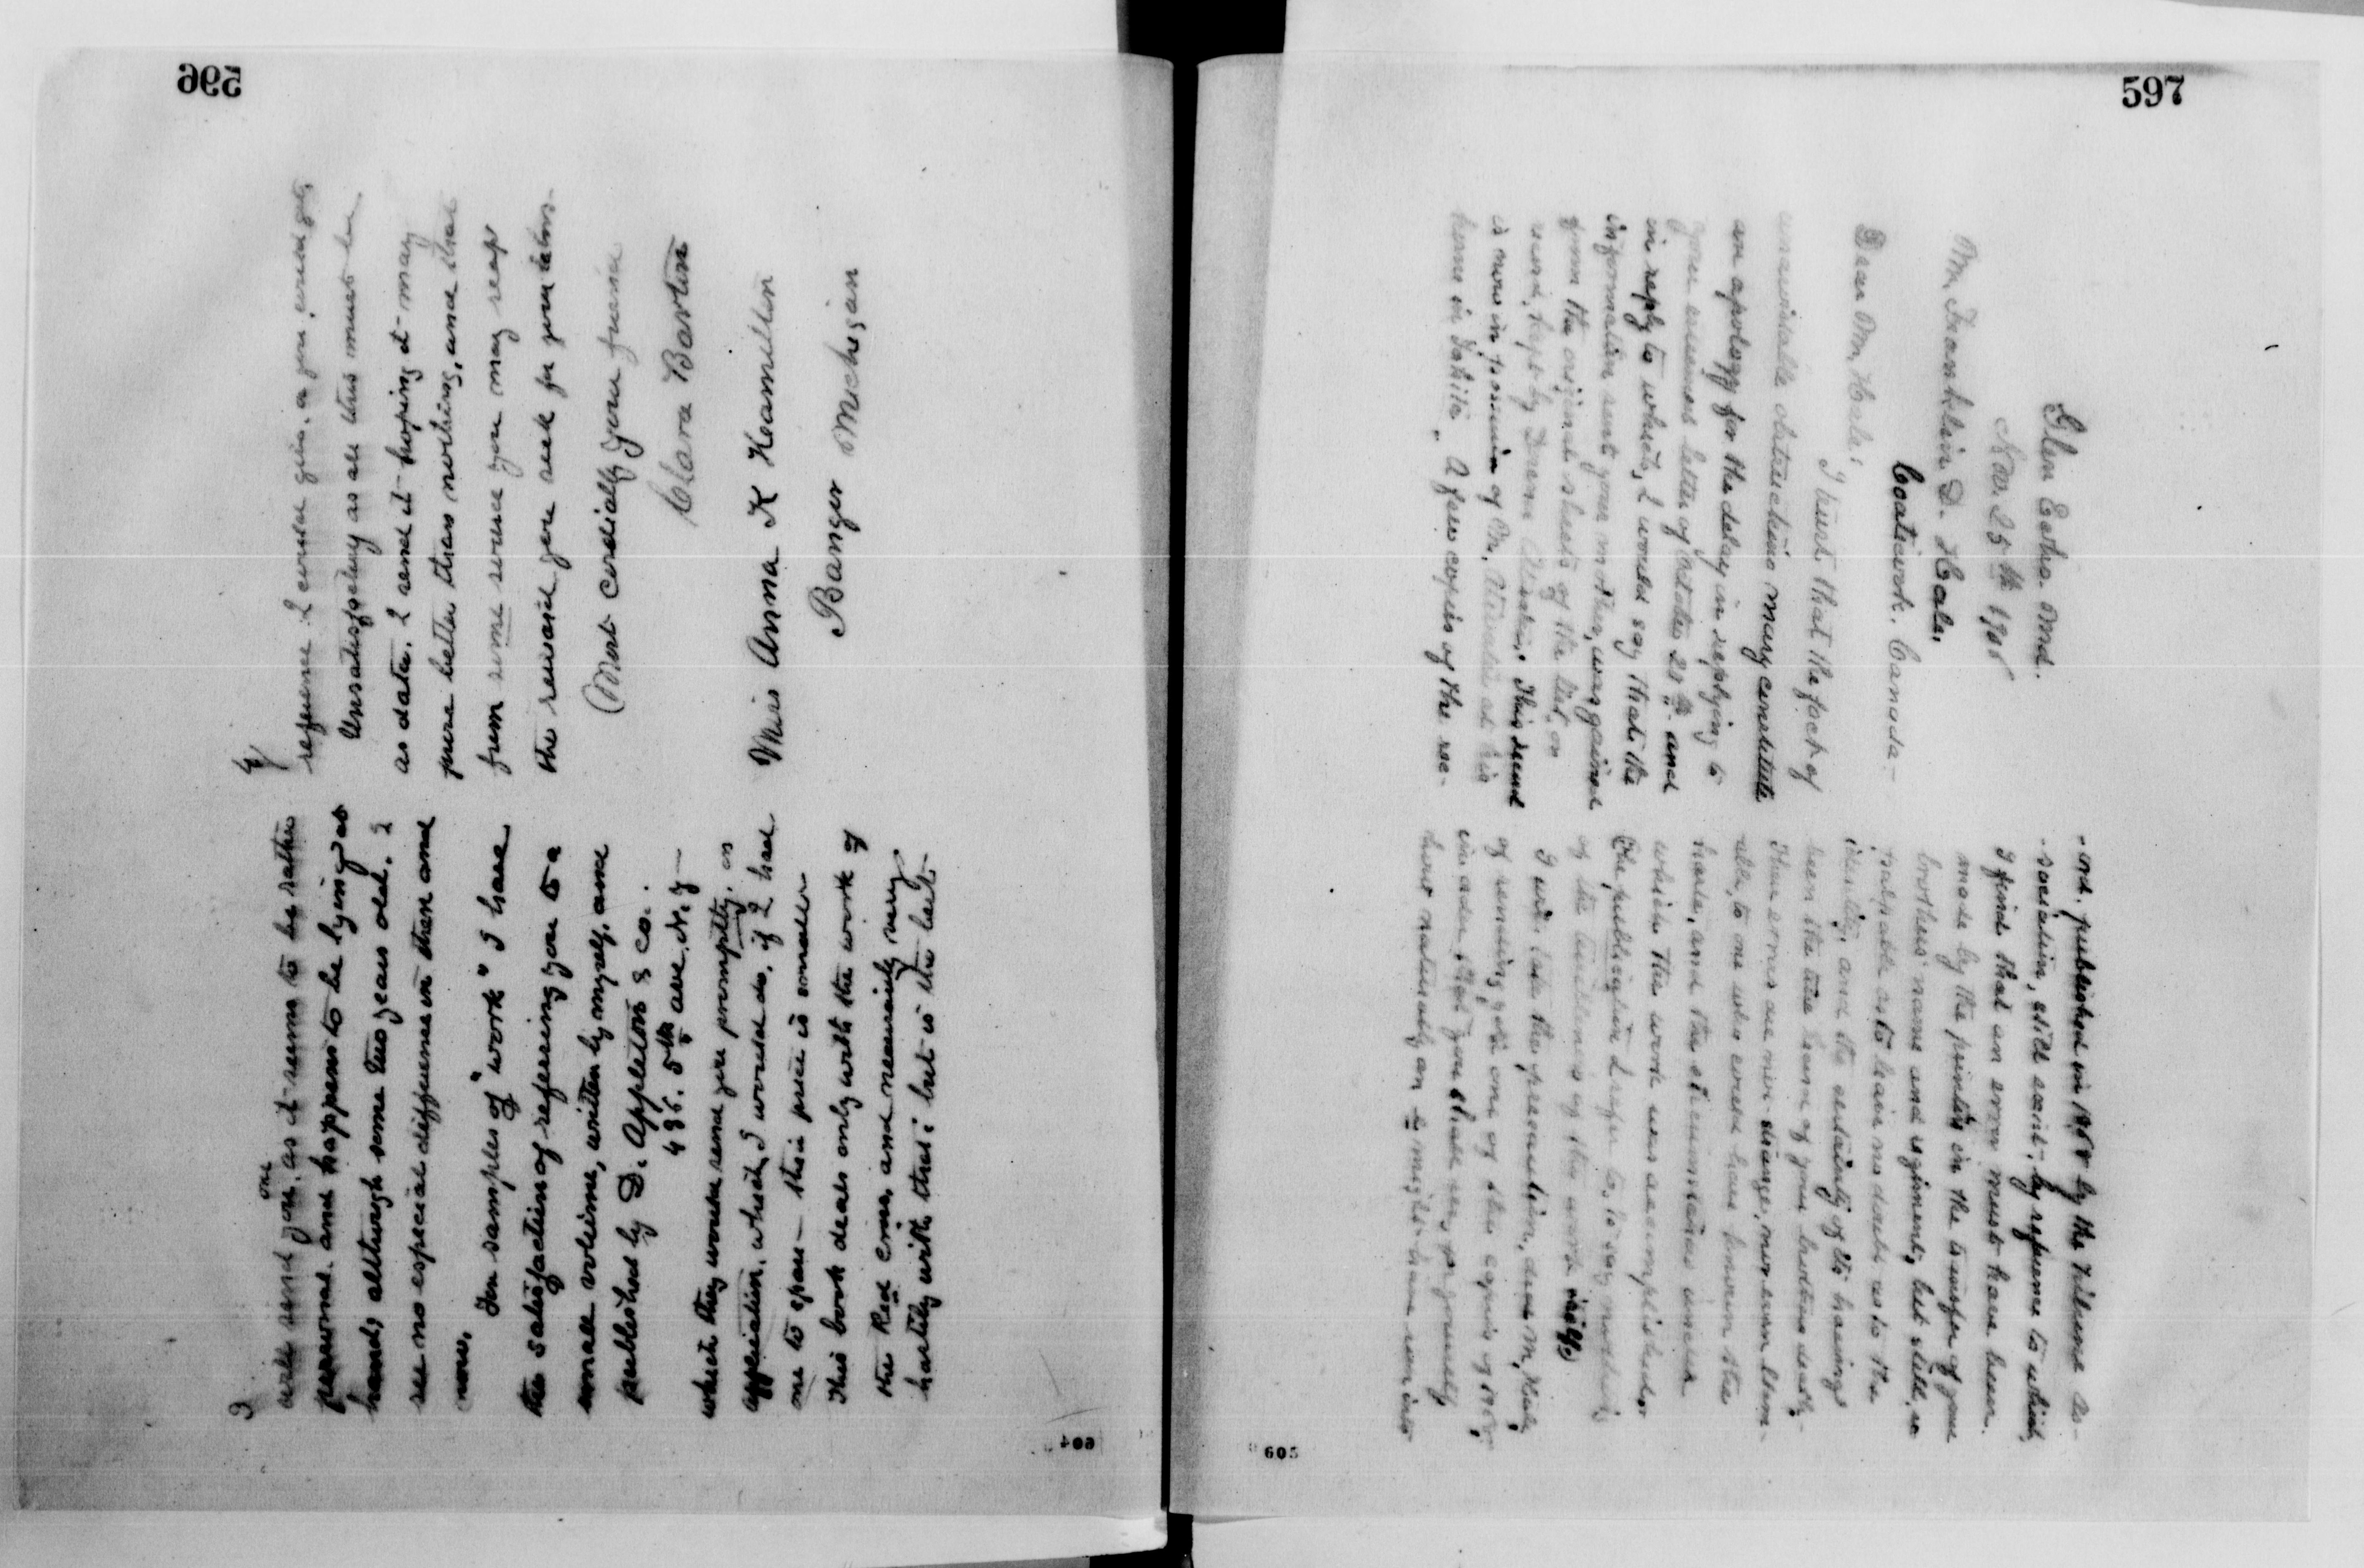 596
3
will send you one, as it seems to be rather
personal and happens to be lying at
hand, although some two years old. I
see no especial difference in then and
now.
For samples of "work" I have
the satisfaction of referring you to a
small volume, written by myself, and
published by D. Appleton & Co.
436. 5th ave. N.Y—
which they would send you promptly, on
application, which I would do, if I had
one to spare— their price is small
This book deals only with the work of
the Red Cross, and necessarily very
hastily with that: but is the last
4
reference I could give, a pen could get
Unsatisfactory as all this must be
as data, I send it hoping it may
prove better than nothing, and that
from some source you may reap
the reward you seek for your labors.
Most cordially your friend
Clara Barton
Miss Anna K Hamilton
Bangor Michigan
604
597
Glen Echo. Md.
Nov. 25th 1905
Mr. Franklin D. Hale,
Coaticook. Canada—
Dear Mr. Hale;
I trust that the fact of
unavoidable obstructions may constitute
an apology for the delay in replying to
your esteemed letter of October 28th and
in reply to which, I would say that the
information sent your mother, was gained
from the original sheets of the list, or
record, kept by Dorence Atwater. This record
is now in possession of Mr. Atwater at his
home in Tahiti. A few copies of the re-
-ord. published in 1868 by the Tribune As-
-sociation, still exist, by reference to which
I find that an error must have been
made by the printer in the transfer of your
brothers' name and regiment, but still, so
palpable as to leave no doubt as to the
identity, and the certainty of its having
been the true record of your brothers death.
These errors are not strange, nor even blam-
able, to one who could have known the
haste, and the circumstances under
which the work was accomplished.
The publication I refer to, to say nothing
of the timeliness of the work itself
I will take the precaution, dear Mr. Hale,
of sending you one of the copies of 1868,
in order that you shall see, for yourself,
how naturally an e might have run into
605